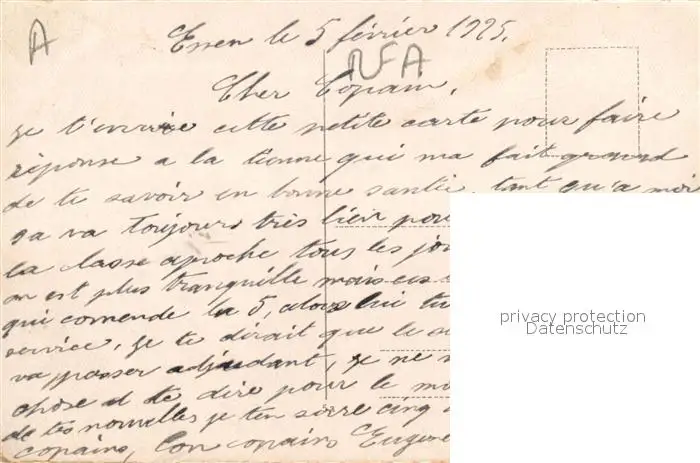 A
Essen le 5 février 1925.
RFA
Cher Copain,
je t'envoie cette petite carte pour faire
réponse a la tienne qui ma fait grand
de te savoir en bonne santée, tant qu'a moi
sa va toujours très bien pou
la classe aproche tous les jou
on est plus tranquille mais ces
qui comende la 5, alors lui tu
service, je te dirait que le
va passer adjudant, je ne
chose a te dire pour le mo
de tes nouvelles je ten serre cinq
copains, ton copains Eugene
privacy protection
Datenschutz